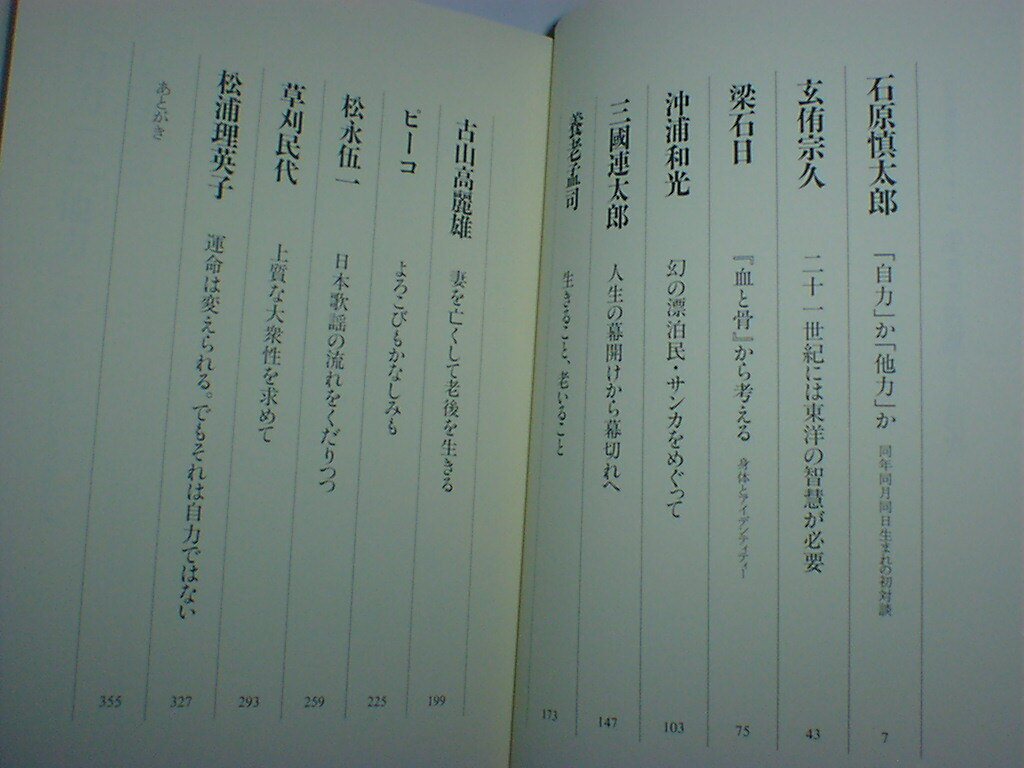 石原慎太郎 「自力」か「他力」か 同年同月同日生まれの初対談 7
玄侑宗久 二十一世紀には東洋の智慧が必要 43
梁石日 『血と骨』から考える 身体とアイデンティティー 75
沖浦和光 幻の漂泊民・サンカをめぐって 103
三國連太郎 人生の幕開けから幕切れへ 147
養老孟司 生きること、老いること 173
古山高麗雄 妻を亡くして老後を生きる 199
ピーコ よろこびもかなしみも 225
松永伍一 日本歌謡の流れをくだりつつ 259
草刈民代 上質な大衆性を求めて 293
松浦理英子 運命は変えられる。でもそれは自力ではない 327
あとがき 355